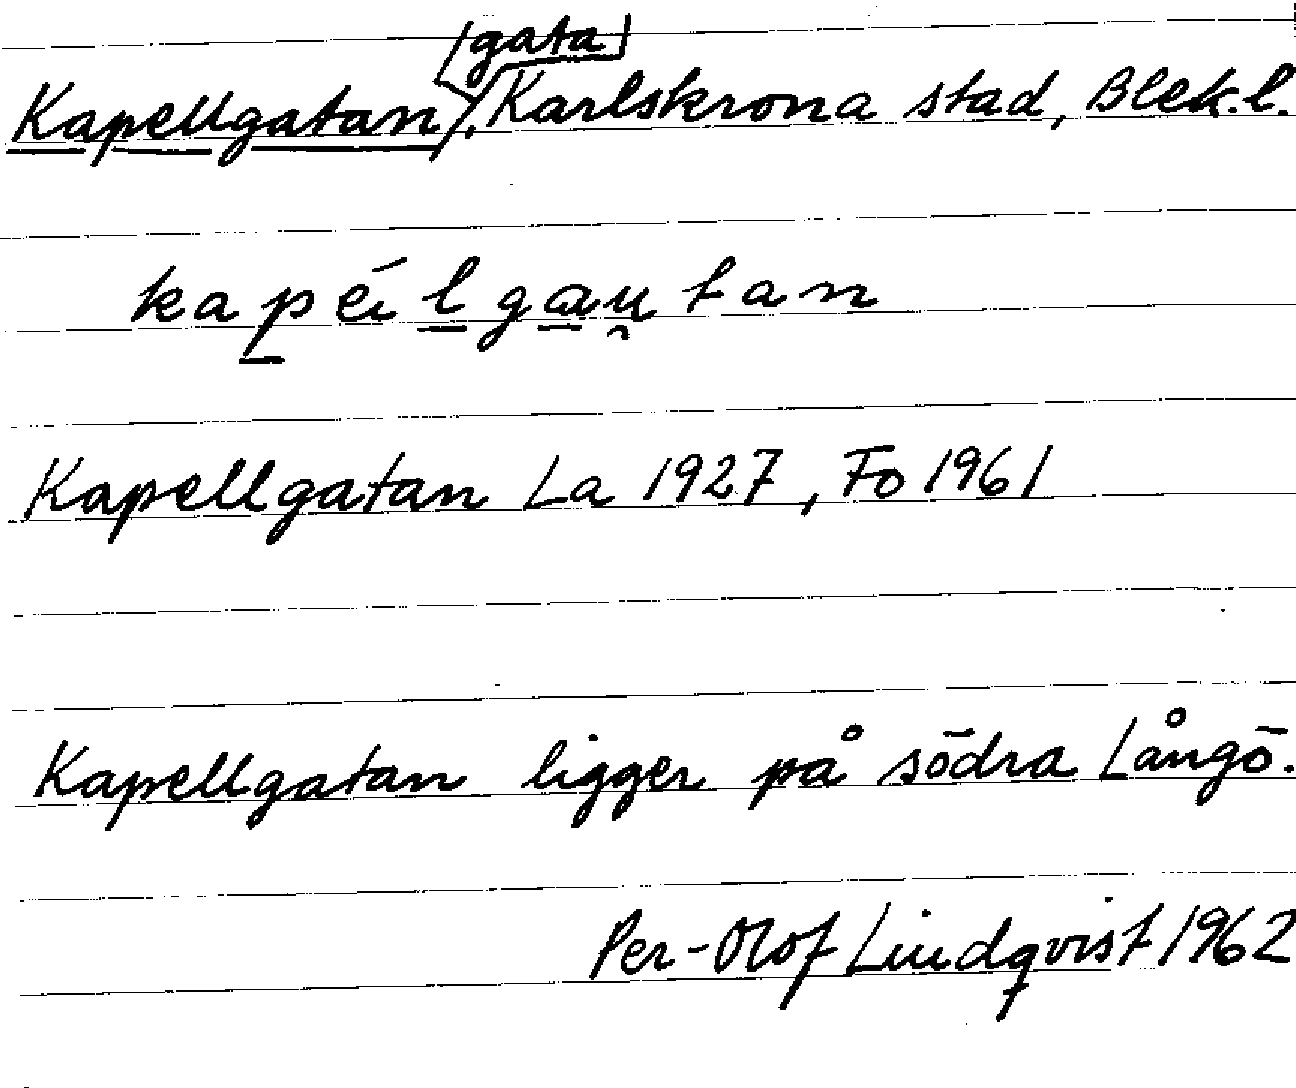 Kapellgatan, [gata] Karlskrona stad, Blek. l.
kapéilgau̯tan
Kapellgatan La 1927, Fo 1961
Kapellgatan ligger på södra Långö.
Per-Olof Lindqvist 1962